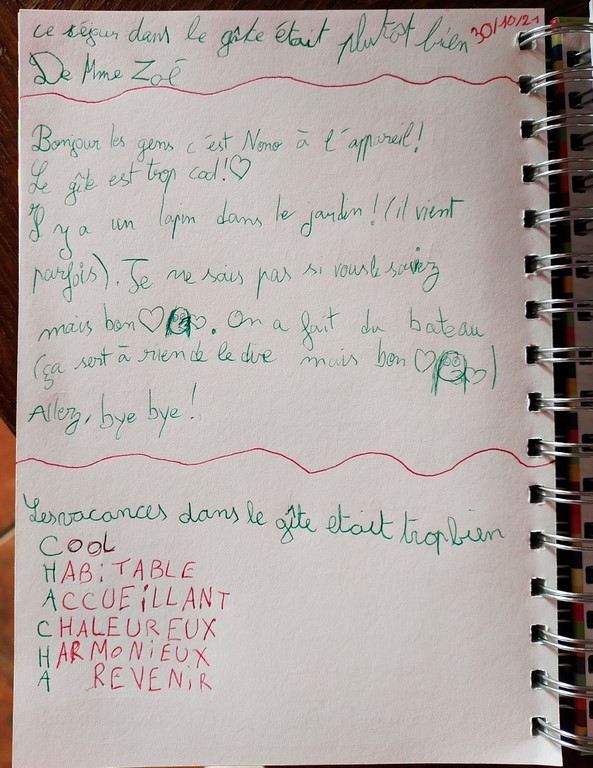 ce séjour dans le gîte était plutot bien 30/10/21
De Mme Zoé
Bonjour les gens c'est Nono à l'appareil!
Le gîte est trop cool!♡
Il y a un lapin dans le jardin! (il vient
parfois). Je ne sais pas si vous le saviez
mais bon ♡ ♡. On a fait du bateau
(ça sert à rien de le dire mais bon ♡ ♡)
Allez, bye bye!
Les vacances dans le gîte etait trop bien
COOL
HABiTABLE
ACCUEiLLANT
CHALEUREUX
HARMONiEUX
A REVENiR